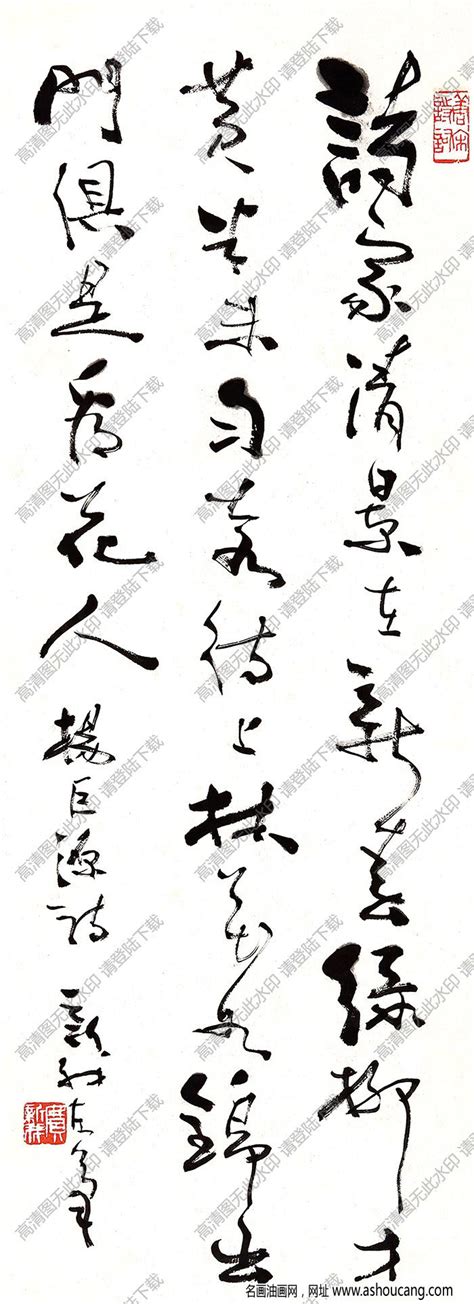 詩家清景在新春綠柳才
黄半未匀若待上林花似錦出
門俱是看花人
楊巨源詩 新我左筆
高清图无此水印 请登陆下载
名画油画网，网址 www.ashoucang.com